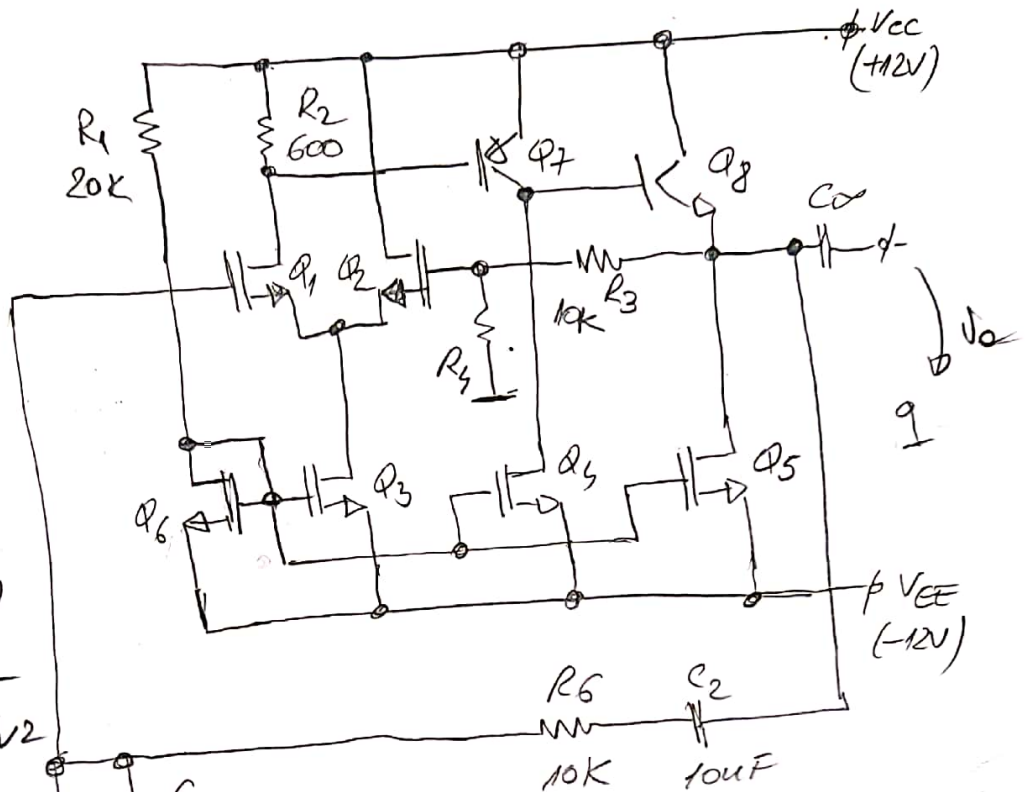 Vcc
(+12V)
R1
20K
R2
600
Q7
Q8
C∞
Q1
Q2
R3
10K
R4
Vo
Q6
Q3
Q4
Q5
VEE
(-12V)
R6
10K
C2
10uF
V2